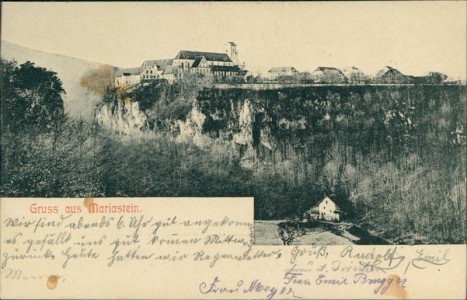 Gruss aus Mariastein.
Wir sind abends 6 Uhr gut angekommen
es gefällt uns gut kommen Mittw.
zurück heute hatten wir Regenwetter
Gruß, Rudolf, Emil
Frau Emil Brugger
Frau Meyer